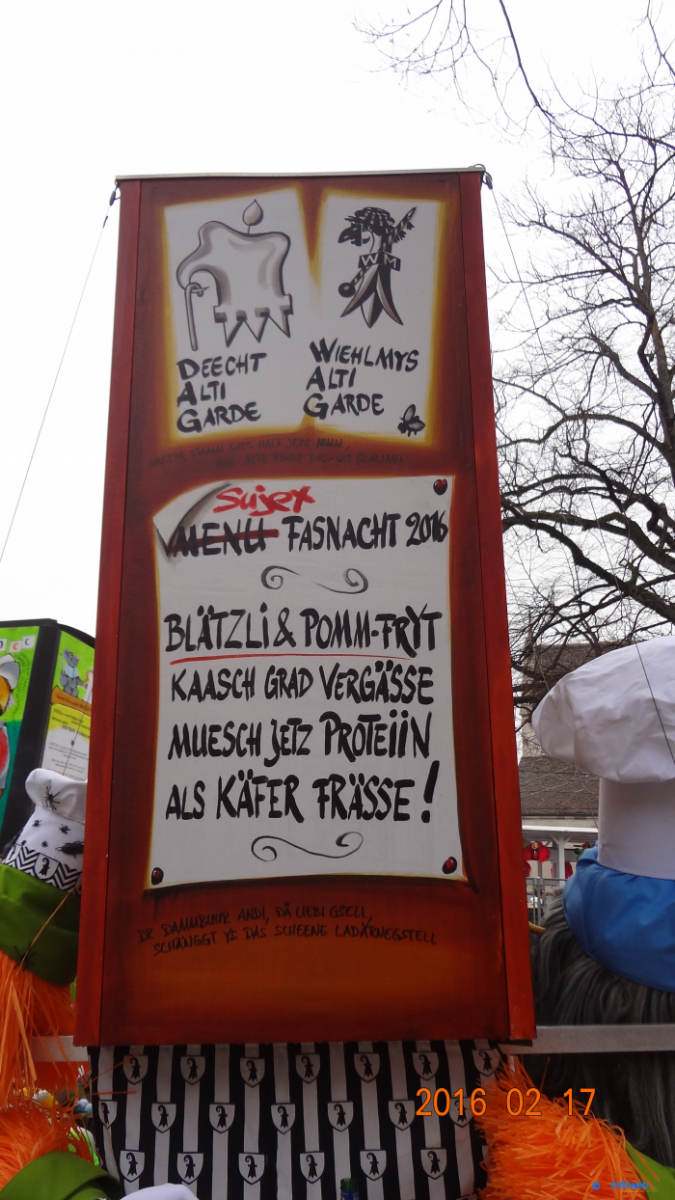 WM
DEECHT
ALTI
GARDE
WIEHLMYS
ALTI
GARDE
Sujet
MENU FASNACHT 2016
BLÄTZLi & POMM-FRYT
KAASCH GRAD VERGÄSSE
MUESCH JETZ PROTEiiN
ALS KÄFER FRÄSSE!
DR DAMMBUUR ANDI, DÄ LIEBI GSELL,
SCHÄNGGT YS DAS SCHEENE LADÄRNEGSTELL
2016 02 17